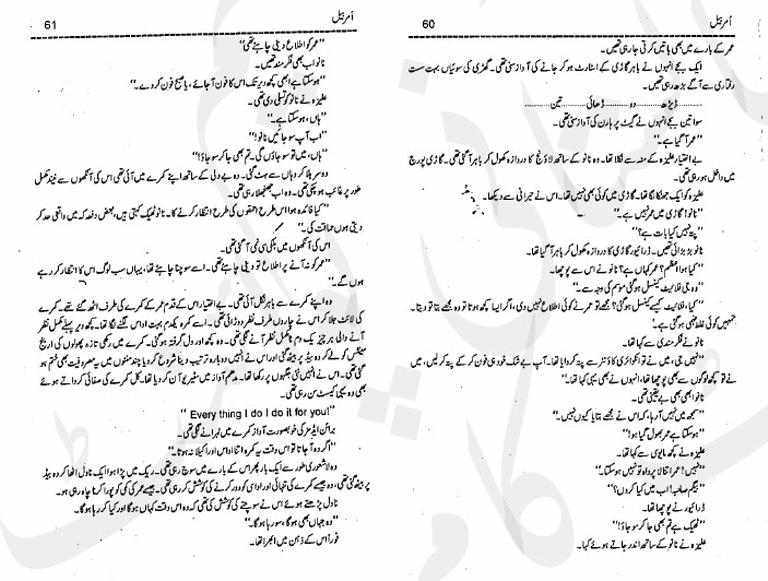 60
اَمربیل
عمر کے بارے میں بھی باتیں کرتی جا رہی تھیں۔
ایک بجے انہوں نے باہر گاڑی کے اسٹارٹ ہو کر جانے کی آواز سنی تھی۔ گھڑی کی سوئیاں بہت سست
رفتاری سے آگے بڑھ رہی تھیں۔
ڈیڑھ............دو............ڈھائی............تین............
سوا تین بجے انہوں نے گیٹ پر ہارن کی آواز سنی تھی۔
”عمر آ گیا ہے۔“
بے اختیار علیزہ کے منہ سے نکلا تھا۔ وہ نانو کے ساتھ لاؤنج کا دروازہ کھول کر باہر آ گئی تھی۔ گاڑی پورچ
میں داخل ہو رہی تھی۔
علیزہ کو ایک جھٹکا لگا تھا۔ گاڑی میں کوئی بھی نہیں تھا۔ اس نے حیرانی سے دیکھا۔
”نانو! گاڑی میں عمر نہیں ہے۔“
”پتہ نہیں کیا بات ہے؟“
نانو بڑبڑائی تھیں۔ ڈرائیور گاڑی کا دروازہ کھول کر باہر آ گیا تھا۔
”کیا ہوا اعظم؟ عمر کہاں ہے؟“ نانو نے اس سے پوچھا۔
”وہ جی فلائیٹ کینسل ہو گئی موسم کی وجہ سے۔“
”کیا، فلائیٹ کیسے کینسل ہو گئی؟ مجھے تو عمر نے کوئی اطلاع نہیں دی، اگر ایسا کچھ ہوتا تو وہ مجھے بتا تو دیتا۔
تمہیں کوئی غلط فہمی ہو گئی ہے۔“
نانو نے فکر مندی سے کہا تھا۔
”نہیں جی، میں نے تو انکوائری کاؤنٹر سے پتہ کروایا تھا۔ آپ بے شک خود ہی فون کر کے پتہ کر لیں، میں
نے تو کچھ لوگوں سے بھی پوچھا تھا، انہوں نے بھی یہی کہا تھا۔“
نانو ابھی بھی بے یقینی تھی۔
”سمجھ میں نہیں آ رہا، کہ اس نے مجھے بتایا کیوں نہیں۔“
”ہو سکتا ہے عمر بھول گیا ہو!“
علیزہ نے کچھ مایوسی سے کہا تھا۔
”نہیں! عمر اتنا لا پرواہ تو نہیں ہو سکتا۔“
”بیگم صاحبہ! اب میں کیا کروں؟“
ڈرائیور نے پوچھا تھا۔
”ٹھیک ہے تم بھی جا کر سو جاؤ!“
علیزہ نے نانو کے ساتھ اندر جاتے ہوئے کہا۔
61
اَمربیل
”عمر کو اطلاع دینی چاہئے تھی“
نانو اب بھی فکر مند تھیں۔
”ہو سکتا ہے ابھی کچھ دیر تک اس کا فون آ جائے، یا صبح فون کر دے۔“
علیزہ نے نانو کو تسلی دی تھی۔
”ہاں، ہو سکتا ہے۔“
”اب آپ سو جائیں نانو!“
”ہاں، میں تو سو جاؤں گی۔ تم بھی جا کر سو جاؤ!“
وہ سر ہلا کر وہاں سے ہٹ گئی۔ وہ بے دلی کے ساتھ اپنے کمرے میں آئی تھی اس کی آنکھوں سے نیند مکمل
طور پر غائب ہو چکی تھی۔ وہ اب جھنجھلا رہی تھی۔
”کیا فائدہ ہوا اس طرح احمقوں کی طرح انتظار کرنے کا۔ نانو ٹھیک کہتی ہیں، بعض دفعہ کہ میں واقعی حد کر
دیتی ہوں حماقت کی۔“
اس کی آنکھوں میں ہلکی سی نمی آ گئی تھی۔
”عمر کو نہ آنے پر اطلاع تو دینی چاہئے تھی۔ اسے سوچنا چاہئے تھا، یہاں سب لوگ اس کا انتظار کر رہے
ہوں گے۔“
وہ اپنے کمرے سے باہر نکل آئی تھی۔ بے اختیار اس کے قدم عمر کے کمرے کی طرف اٹھ گئے تھے۔ کمرے
کی لائٹ جلا کر اس نے چاروں طرف نظر دوڑائی تھی۔ اسے کمرہ یکدم بہت اداس لگنے لگا تھا۔ کچھ دیر پہلے مکمل نظر
آنے والی ہر چیز یک دم نامکمل نظر آنے لگی تھی۔ وہ کچھ اور دل گرفتہ ہو گئی۔ کمرے میں رکھی تازہ پھولوں کی ارینج
مینٹس کو لے کر وہ بیڈ پر بیٹھ گئی اور اس نے انہیں دوبارہ ترتیب دینا شروع کر دیا چند منٹوں میں یہ مصروفیت بھی ختم ہو
گئی تھی۔ اس نے انہیں نئی جگہوں پر رکھا تھا۔ مدھم آواز میں سٹیریو آن کر دیا تھا۔ کل کمرے کی صفائی کرواتے ہوئے
بھی وہ یہی کیسٹ سن رہی تھی۔
” Every thing I do I do it for you!“
برائن ایڈمز کی خوبصورت آواز کمرے میں لہرانے لگی تھی۔
”اگر وہ آ جاتا تو اس وقت یہ کمرہ اتنا اداس اور اکیلا نہ ہوتا۔“
وہ لاشعوری طور سے ایک بار پھر اس کے بارے میں سوچ رہی تھی۔ ریک میں پڑا ہوا ایک ناول اٹھا کر وہ بیڈ
پر بیٹھ گئی تھی۔ جیسے کمرے کی تنہائی اور اداسی کو دور کرنے کی کوشش کر رہی تھی۔ جیسے عمر کی کمی کو پورا کرنا چاہ رہی ہو۔
ناول پڑھتے ہوئے اس نے سوچنے کی کوشش کی تھی کہ وہ اس وقت کہاں ہوگا اور کیا کر رہا ہوگا۔
”وہ جہاں بھی ہوگا، سو رہا ہوگا۔“
فوراً اس کے ذہن میں ابھرا تھا۔